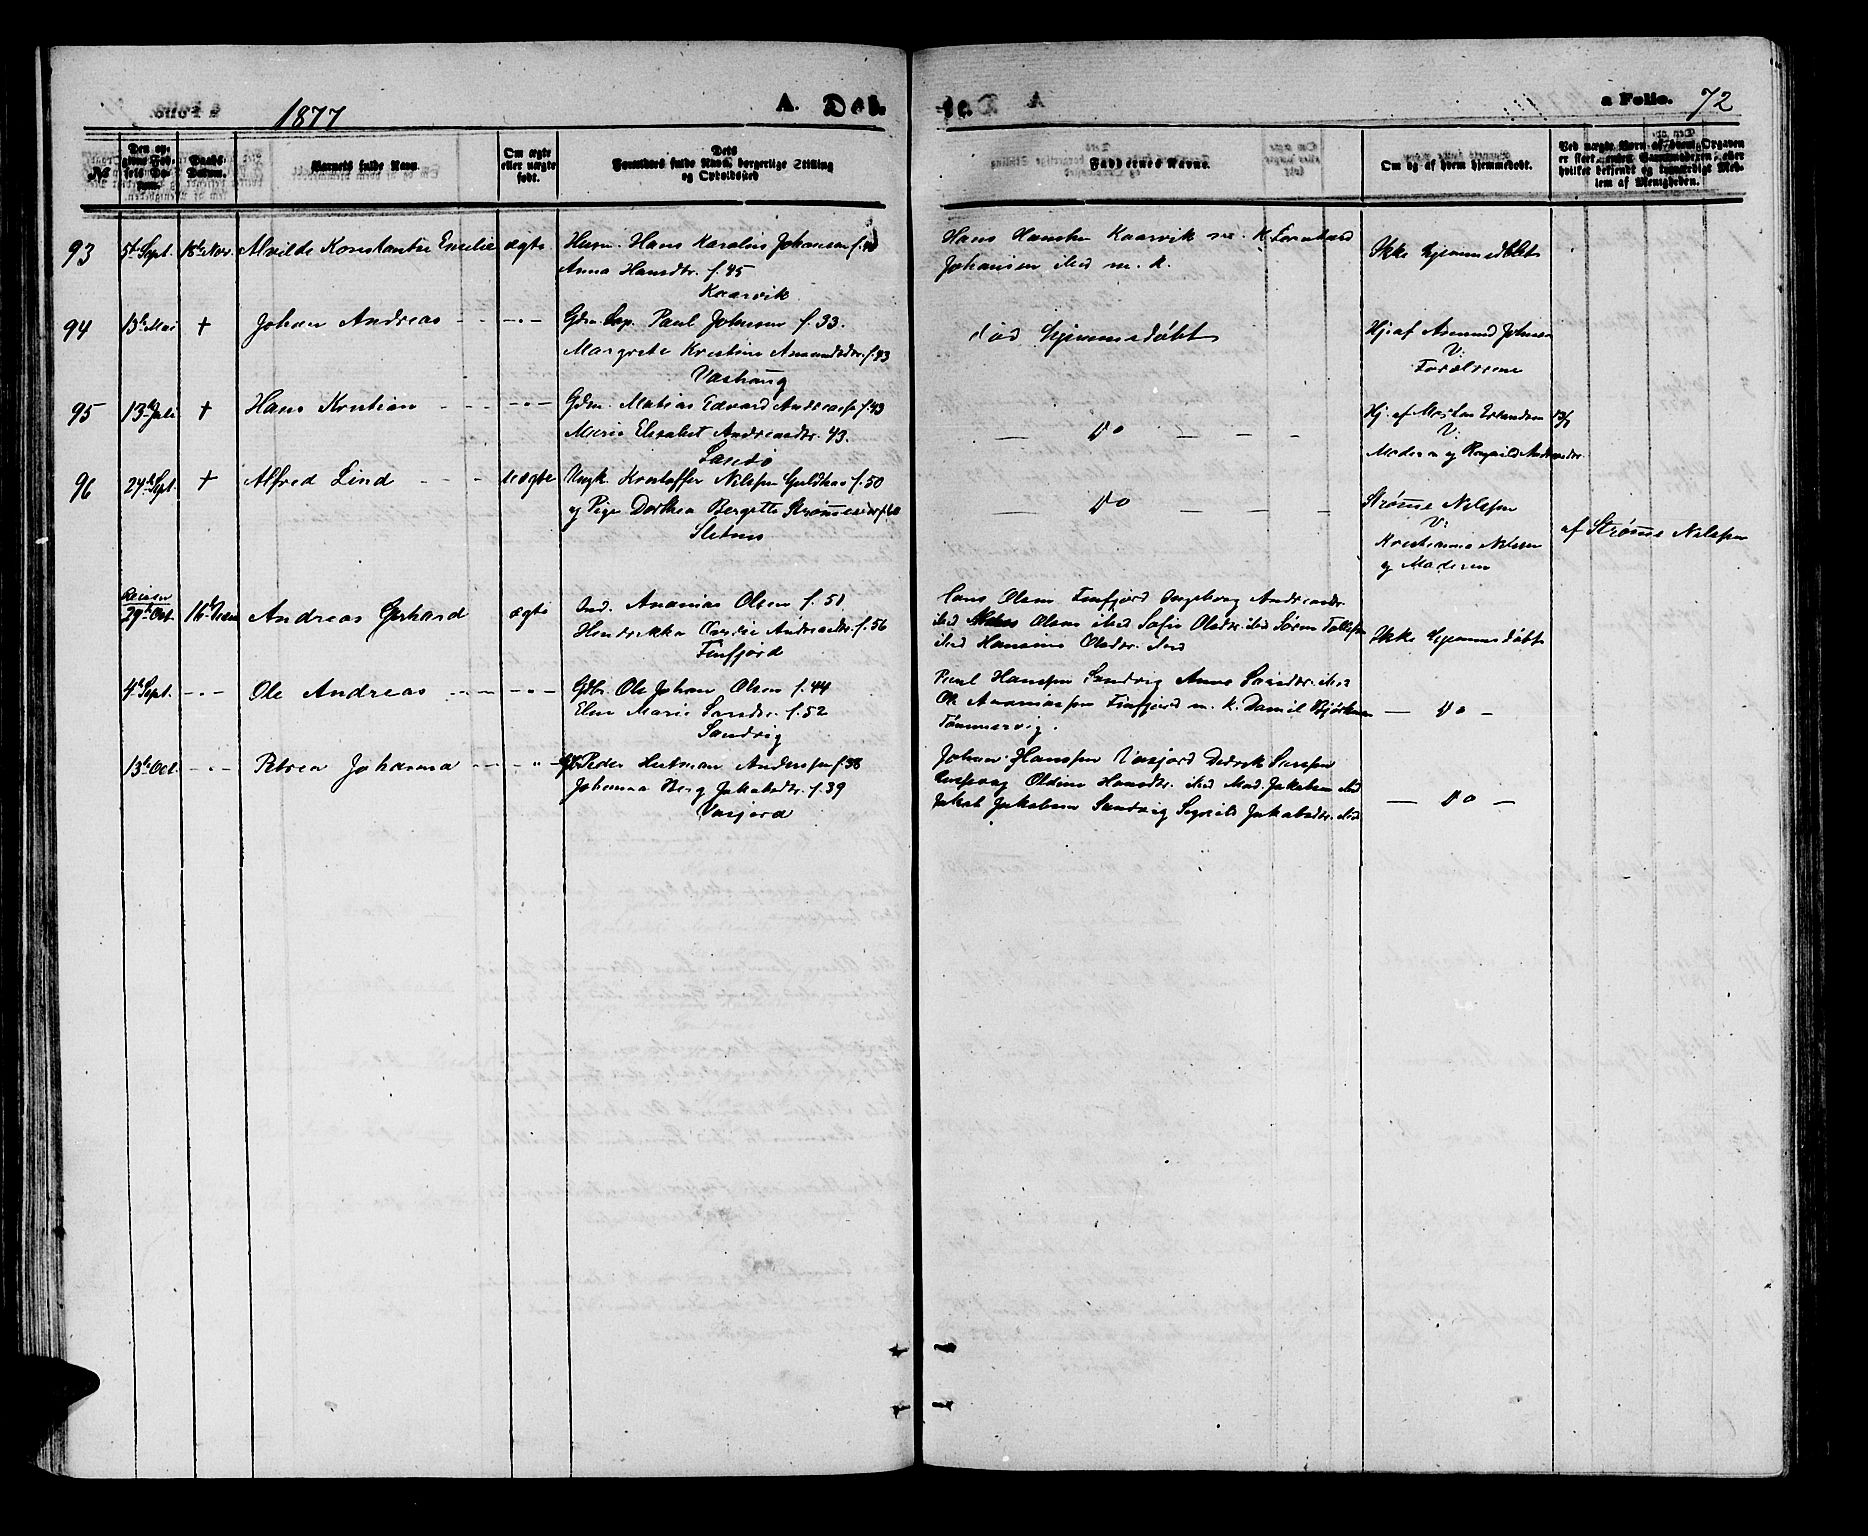 1877
A. Døbte.
a Folio. 72
No
Den opgivne Fødsels Datum.
Daabs Datum.
Barnets fulde Navn.
Om ægte eller uægte født.
Dets Forældres fulde Navn, borgerlige Stilling og Opholdssted
Faddernes Navne.
Om og af hvem hjemmedøbt.
Ved uægte Børn af hvem Opgaven er skeet, enten Gaardmoderen, eller hvilket bekjendt og troværdigt Medlem af Menigheden.
93 5te Sept. 18de Nov. Alvilde Konstantse Emelie ægte
Husm. Hans Karolius Johansen f.
Anna Hansdtr. f. 45
Kaarvik
Hans Hansen Kaarvik m. K. Lornhard
Johansen ibid m. K.
Ikke hjemmedøbt
94 13de Mai + Johan Andreas - - -"-
Gdm. Paul Johnsen f. 33.
Margrete Kristine Amundsdtr. f. 43
Vashaug
død hjemmedøbt
Hj. af Amund Johnsen
V:
Forældrene
95 13de Juli + Hans Kristian - - -"-
Gdm. Matias Edvard Andreasen f. 43
Marie Elisabet Andreasdtr. 43.
Sandø
Do
Hj. af Morten Erlandsen
V:
Moderen og Ragnild Andreasdtr.
96 24de Sept. + Alfred Lind - - uægte
Ungk. Kristoffer Nilsen Guldhav f. 50
og Pige Dorthea Bergette Strømesdtr f. 60
Sletnes
Do
Strøme Nilsen
V:
Kristianna Nilsen
og Moderen
af Strøme Nilsen
29de Oct. 16de Andreas Gerhard ægte
Ind. Ananias Olsen f. 51
Hendrikka Andreasdtr. f. 56
Finfjord
Lars Olsen Finfjord Ingeborg Andreasdtr.
ibid Olsen ibid Sofie Olsdtr. ibid Søren Tollefsen
ibid Hansine Olsdtr. ibid
Ikke hjemmedøbt
4de Sept. -"- Ole Andreas - - -"-
Gdbr. Ole Johan Olsen f. 44
Elen Marie Larsdtr. f. 52
Sandvig
Paul Hansen Sandvig Anne Larsdtr. ibid
Ole Ananiassen Finfjord m. K. Daniel
Tømmervig.
Do
13de Oct. -"- Petrea Johanna - - -"-
Gbr Peder Hartman Andersen f. 38
Johanna Berg Jakobsdtr. f. 39
Vasjord
Johan Hansen Vasjord Didrik Jensen
Oldine Hansdtr. ibid Mad. Jakobsen ibid
Jakob Jakobsen Sandvig Signild Jakobsdtr. ibid
Do